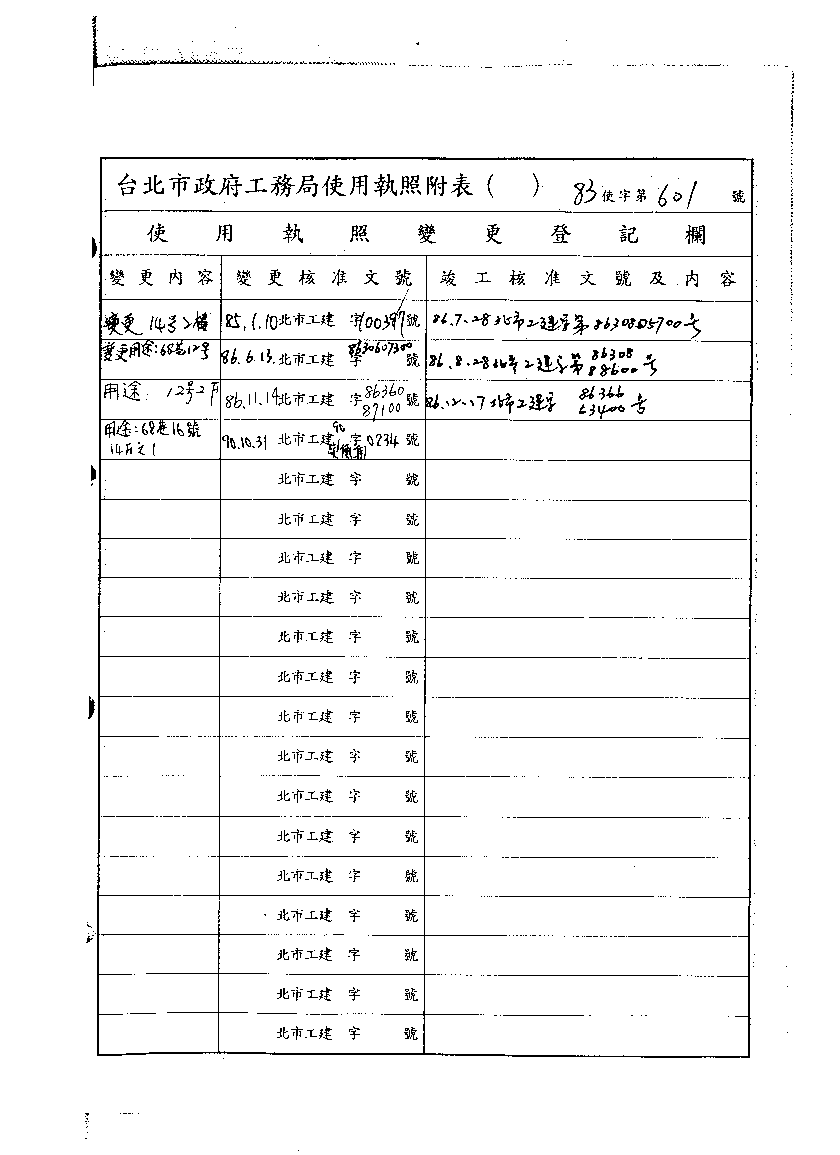 台北市政府工務局使用執照附表（　） 83使字第601號
使用執照變更登記欄
變更內容 變更核准文號 竣工核准文號及內容
變更14号2樓 85.1.10北市工建 字700397號 86.7.28北市工建字第8630805700号
變更用途:68巷12号 86.6.13.北市工建 字8630607300號 86.8.28北市工建字第8630888600号
用途: 12号2F 86.11.14北市工建 字8636087100號 86.12.17北市工建字8636663400号
用途:68巷16號
14F之1 90.10.31 北市工建 90字0234號
北市工建 字 號
北市工建 字 號
北市工建 字 號
北市工建 字 號
北市工建 字 號
北市工建 字 號
北市工建 字 號
北市工建 字 號
北市工建 字 號
北市工建 字 號
北市工建 字 號
北市工建 字 號
北市工建 字 號
北市工建 字 號
北市工建 字 號